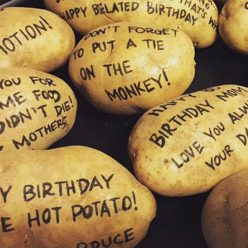 HAPPY BELATED BIRTHDAY
THAT'S
WHAT
OTION!
DON'T FORGET
TO PUT A TIE
ON THE
MONKEY!
YOU FOR
ME FOOD
DIDN'T DIE!
MOTHERS
HAPPY
BIRTHDAY MOM
LOVE YOU AL
YOUR
DA
BIRTHDAY
HOT POTATO!
BRUCE